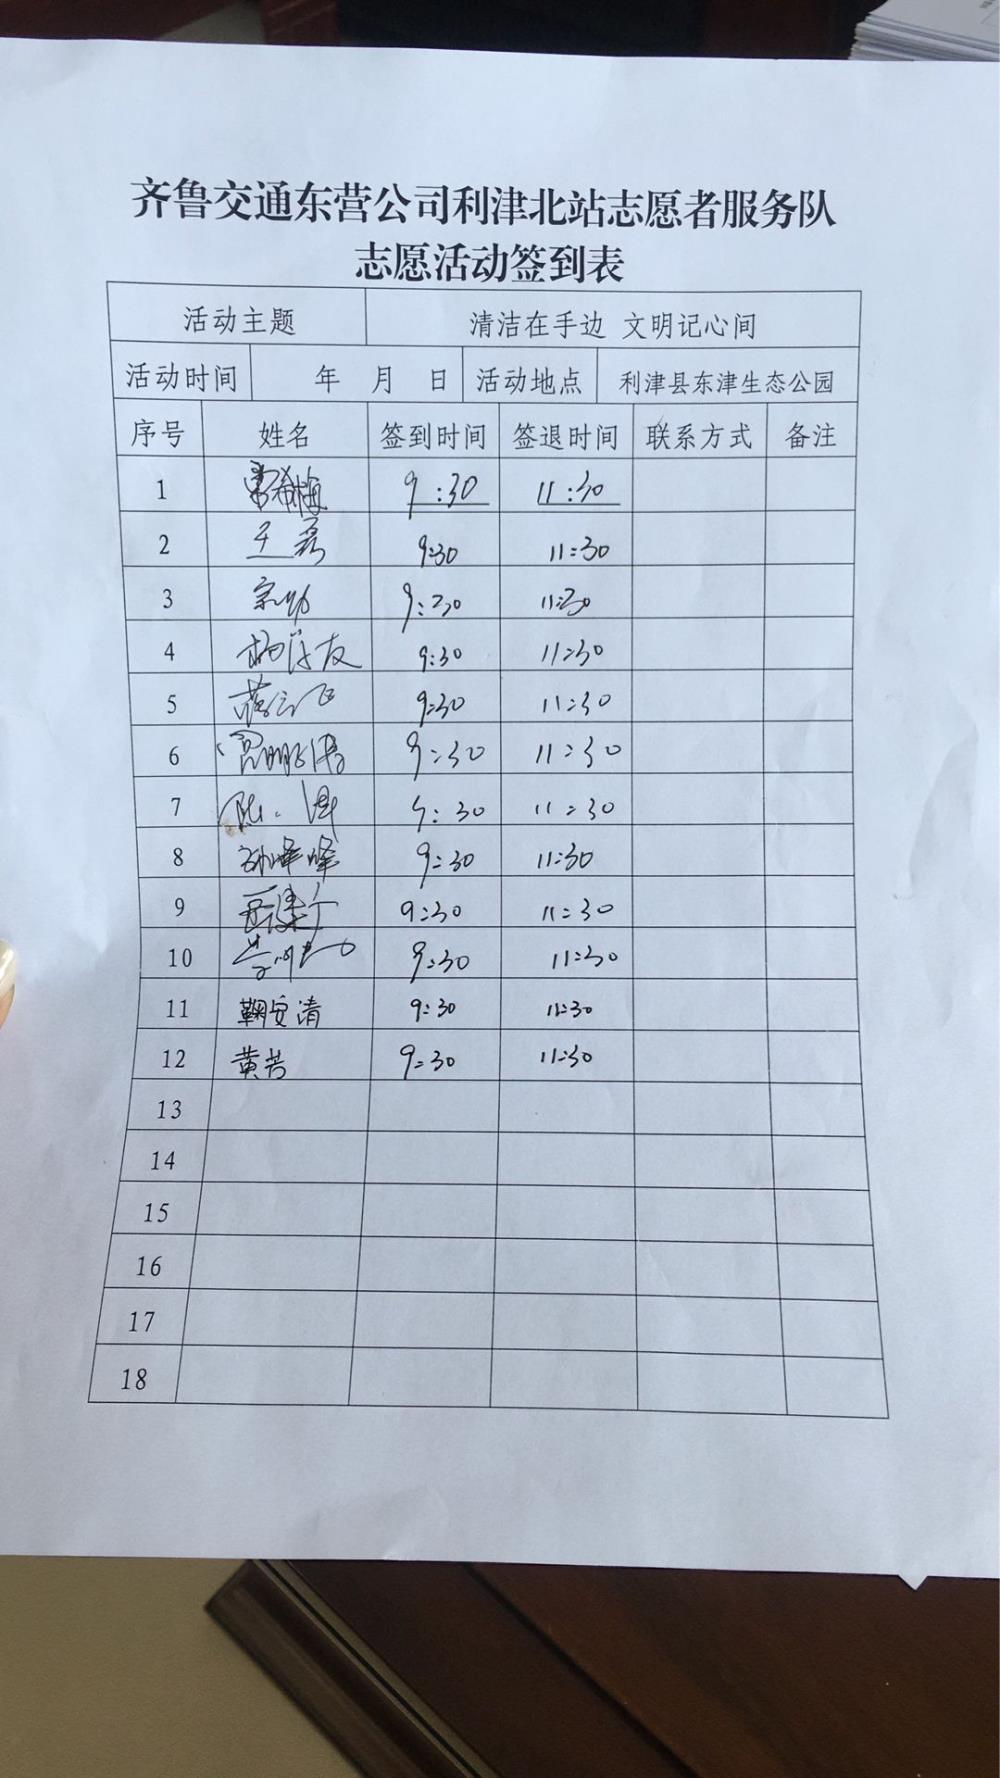 齐鲁交通东营公司利津北站志愿者服务队
志愿活动签到表
活动主题 清洁在手边 文明记心间
活动时间 年 月 日 活动地点 利津县东津生态公园
序号 姓名 签到时间 签退时间 联系方式 备注
1 9:30 11:30
2 9:30 11:30
3 9:30 11:30
4 9:30 11:30
5 9:30 11:30
6 9:30 11:30
7 9:30 11:30
8 孙峰峰 9:30 11:30
9 9:30 11:30
10 9:30 11:30
11 鞠安清 9:30 11:30
12 黄芳 9:30 11:30
13
14
15
16
17
18